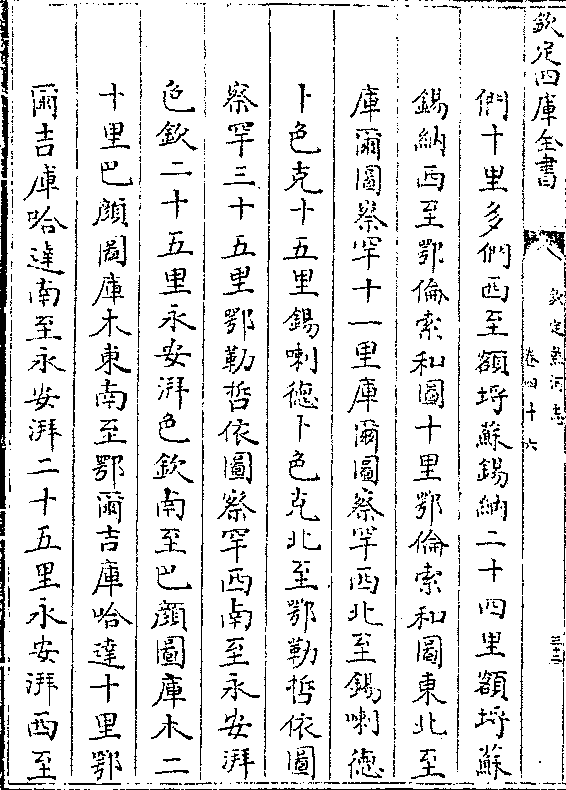 欽定四庫全書
欽定熱河志
卷四十六
們十里多們西至額埓蘇錫納二十四里額埓蘇
錫納西至鄂倫索和圖十里鄂倫索和圖東北至
庫爾圖察罕十一里庫爾圖察罕西北至錫喇德
卜色克十五里錫喇德卜色克北至鄂勒哲依圖
察罕三十五里鄂勒哲依圖察罕西南至永安湃
色欽二十五里永安湃色欽南至巴顔圖庫木二
十里巴顔圖庫木東南至鄂爾吉庫哈達十里鄂
爾吉庫哈達南至永安湃二十五里永安湃西至